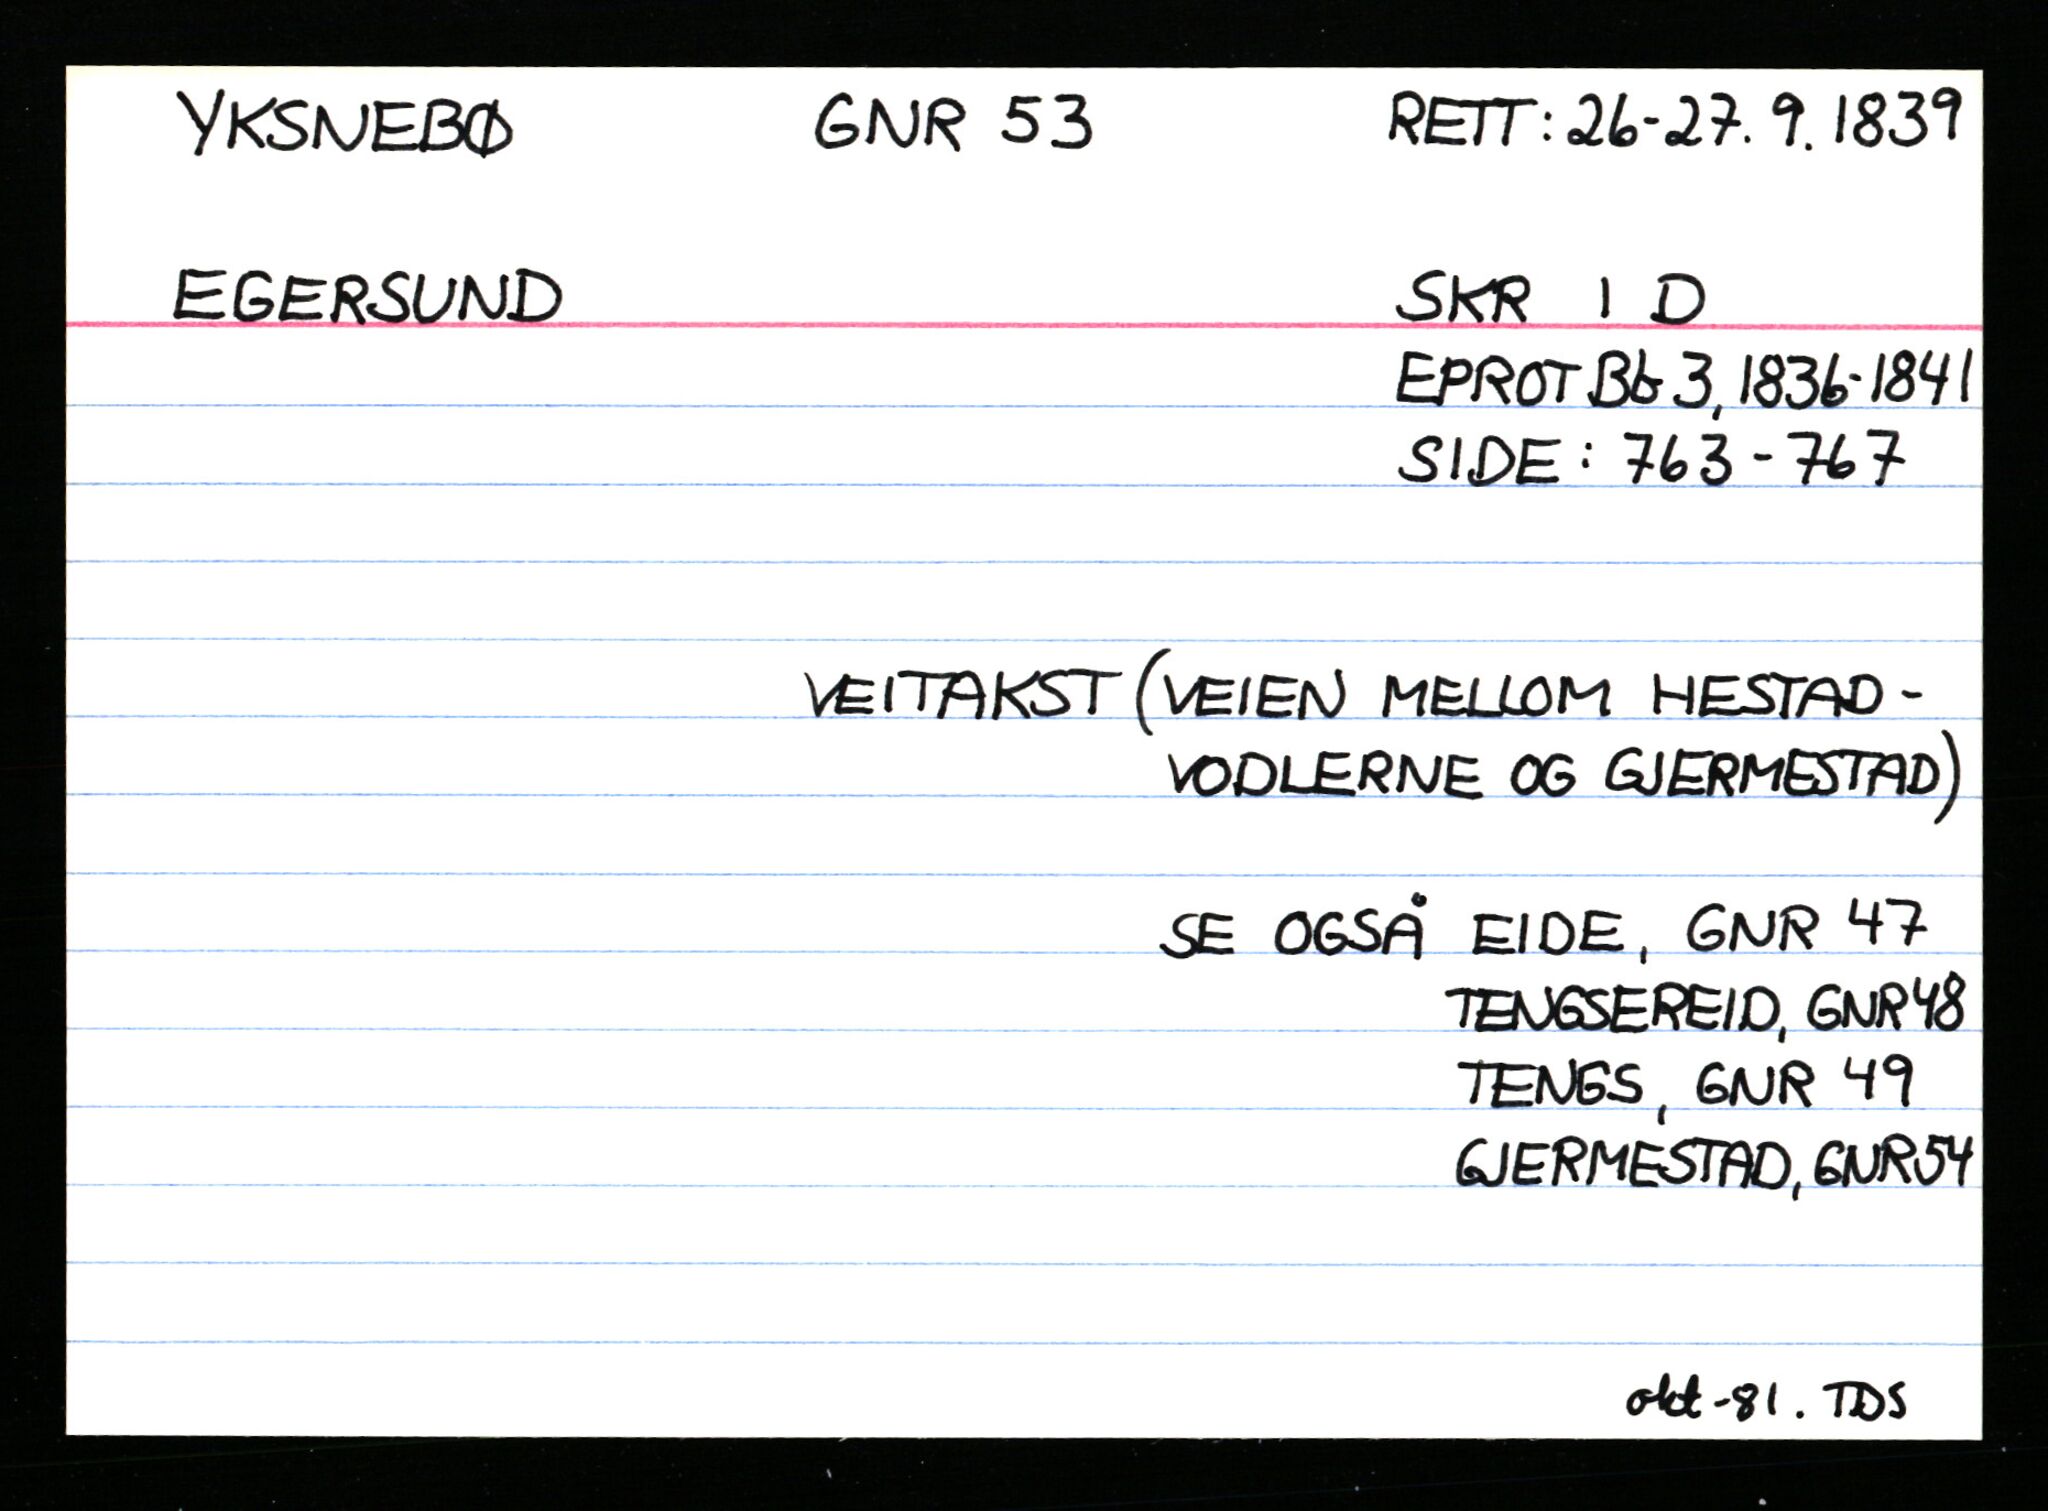 YKSNEBØ GNR 53 RETT: 26-27. 9. 1839
EGERSUND SKR I D
EPROT Bb 3, 1836-1841
SIDE: 763-767
VEITAKST (VEIEN MELLOM HESTAD-
VODLERNE OG GJERMESTAD)
SE OGSÅ EIDE, GNR 47
TENGSEREID, GNR 48
TENGS, GNR 49
GJERMESTAD, GNR 54
okt-81. TDS